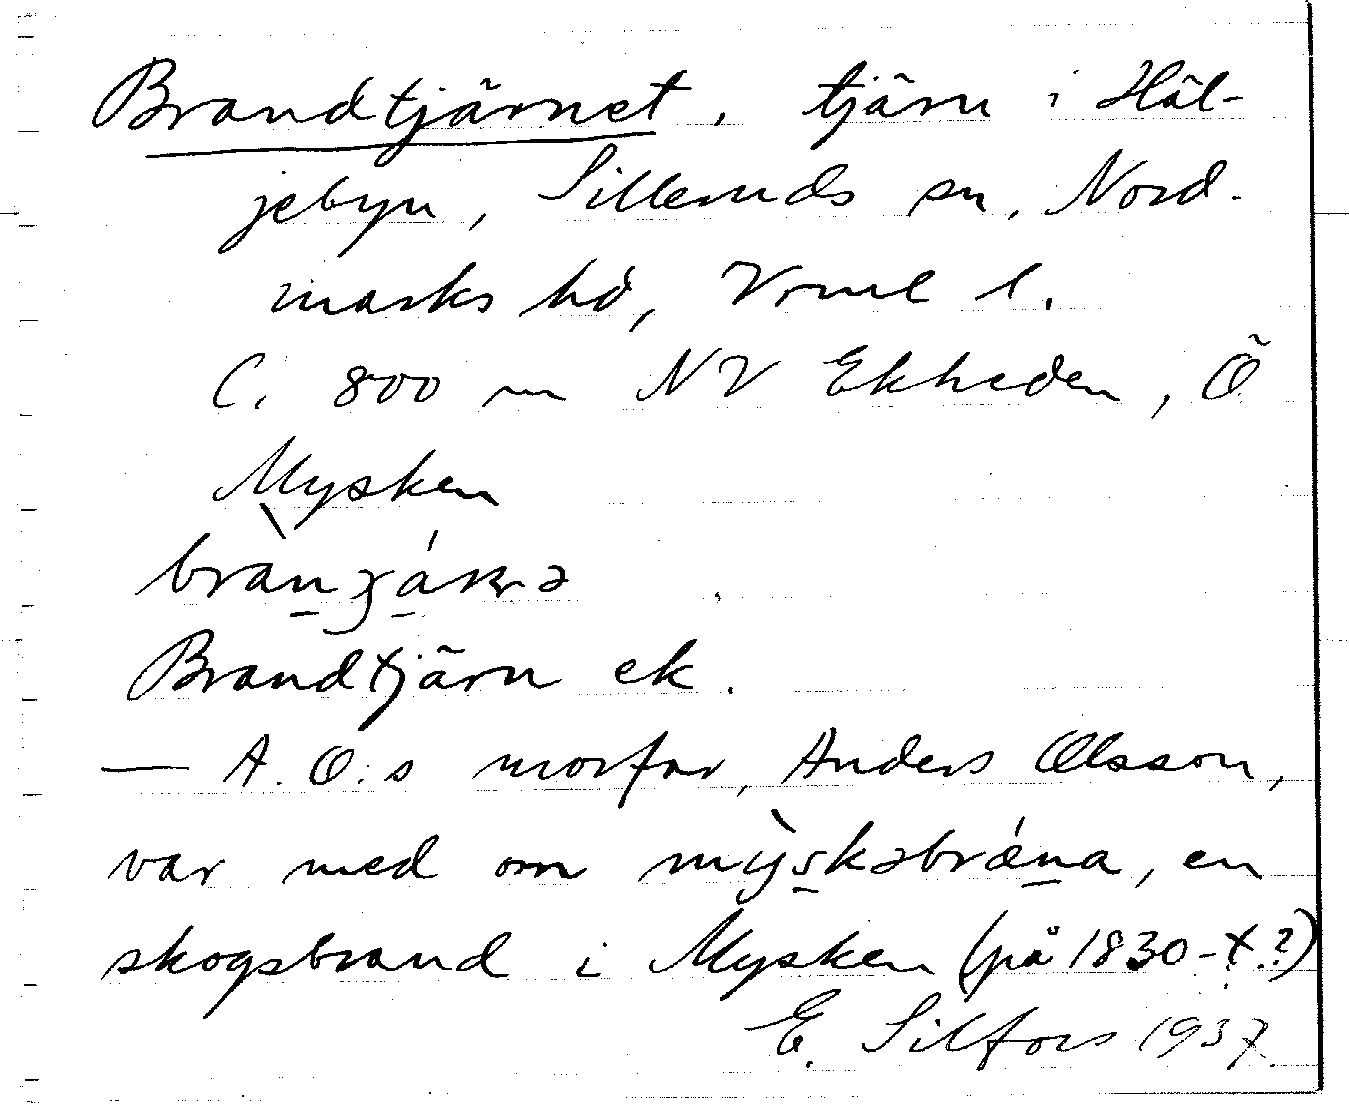 Brandtjärnet, tjärn i Häl-
jebyn, Silleruds sn, Nord-
marks hd, Vrml l.
C. 800 m NV Ekheden, Ö
Mysken
Brandtjärn ek.
— A. O:s morfar, Anders Olsson,
var med om mỳskəbrǽna, en
skogsbrand i Mysken (på 1830-t.?)
E. Silfors 1937.